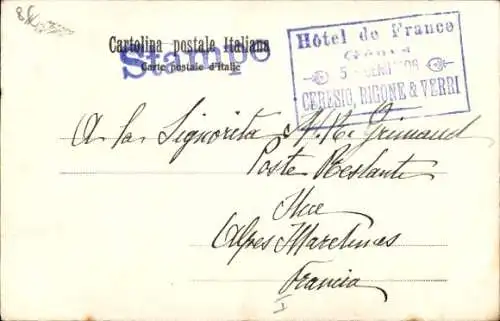 Cartolina postale Italiana
Carte postale d'Italie
Stampe
Hôtel de France
5 GEN 1906
CERESIO, RIGONE & VERRI
A la Signorita Grimaud
Poste Restante
Alpes Maritimes
Francia